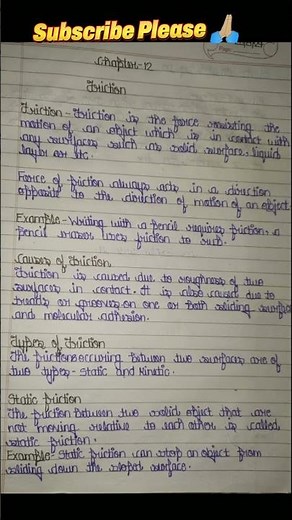 Subscribe Please 🙏🏻
Chapter-12
Friction
Friction - Friction is the force resisting the
motion of an object which is in contact with
any surfaces such as solid surface, liquid
layer or etc.
Force of friction always acts in a direction
opposite to the direction of motion of an object.
Example - Writing with a pencil requires friction, a
pencil eraser uses friction to rub.
Causes of Friction
Friction is caused due to roughness of two
surfaces in contact. It is also caused due to
treads or grooves on one or both sliding surface
and molecular adhesion.
Types of Friction
The frictions occuring between two surfaces are of
two types - Static and Kinetic.
Static friction
The friction between two solid object that are
not moving relative to each other is called
static friction.
Example - Static friction can stop an object from
sliding down the sloped surface.